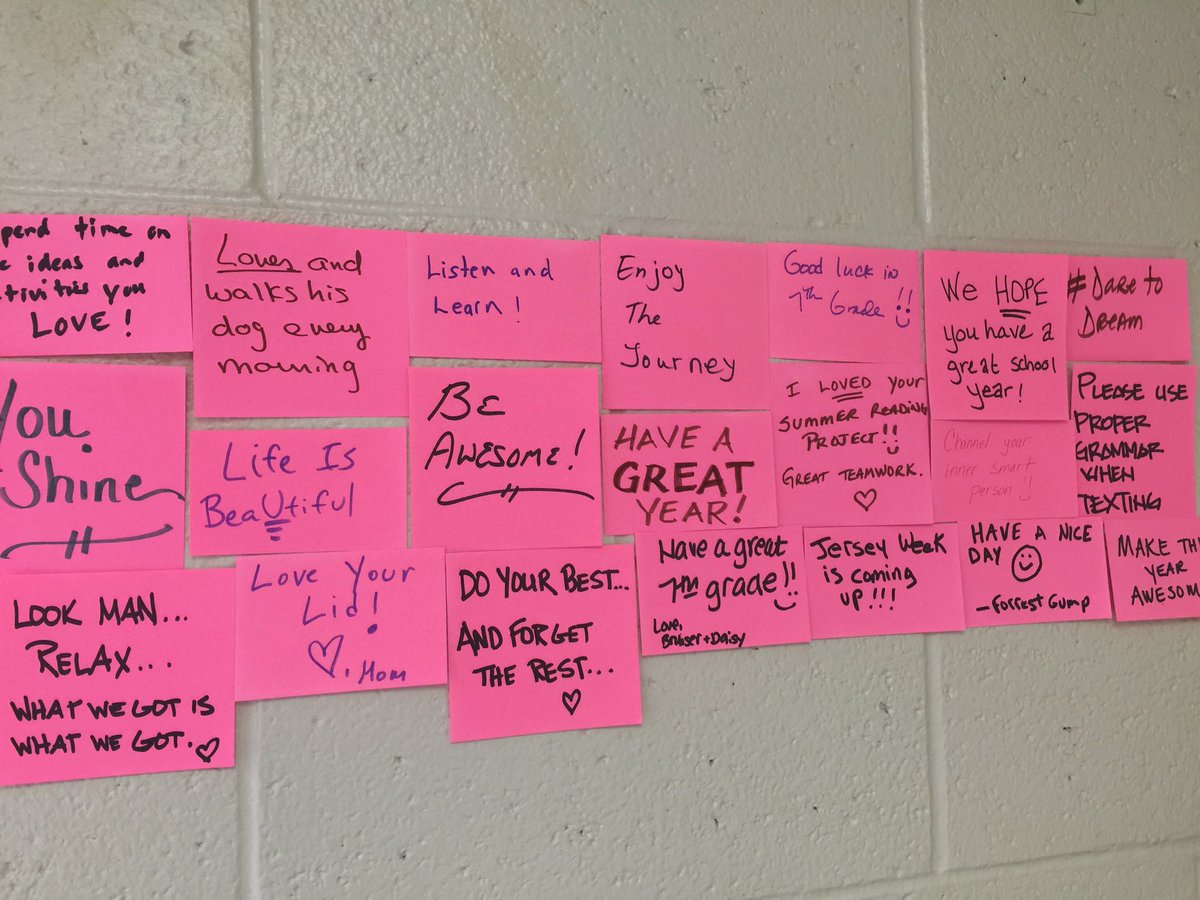 pend time on
ideas and
you
LOVE!
Loves and
walks his
dog every
morning
Listen and
Learn!
Enjoy
The
Journey
Good luck in
7th Grade!!
We HOPE
you have a
great school
year!
#Dare to
Dream
You
Shine
Life Is
BeaUtiful
BE
AWESOME!
HAVE A
GREAT
YEAR!
I LOVED YOUR
SUMMER READING
PROJECT!!
GREAT TEAMWORK.
Channel your
inner smart
person!!
PLEASE USE
PROPER
GRAMMAR
WHEN
TEXTING
LOOK MAN...
RELAX...
WHAT WE GOT IS
WHAT WE GOT.
Love Your
Lid!
, Mom
DO YOUR BEST...
AND FORGET
THE REST...
Have a great
7th grade!!
Love,
Bruiser + Daisy
Jersey Week
is coming
up!!!
HAVE A NICE
DAY
- Forrest Gump
MAKE THI
YEAR
AWESOM